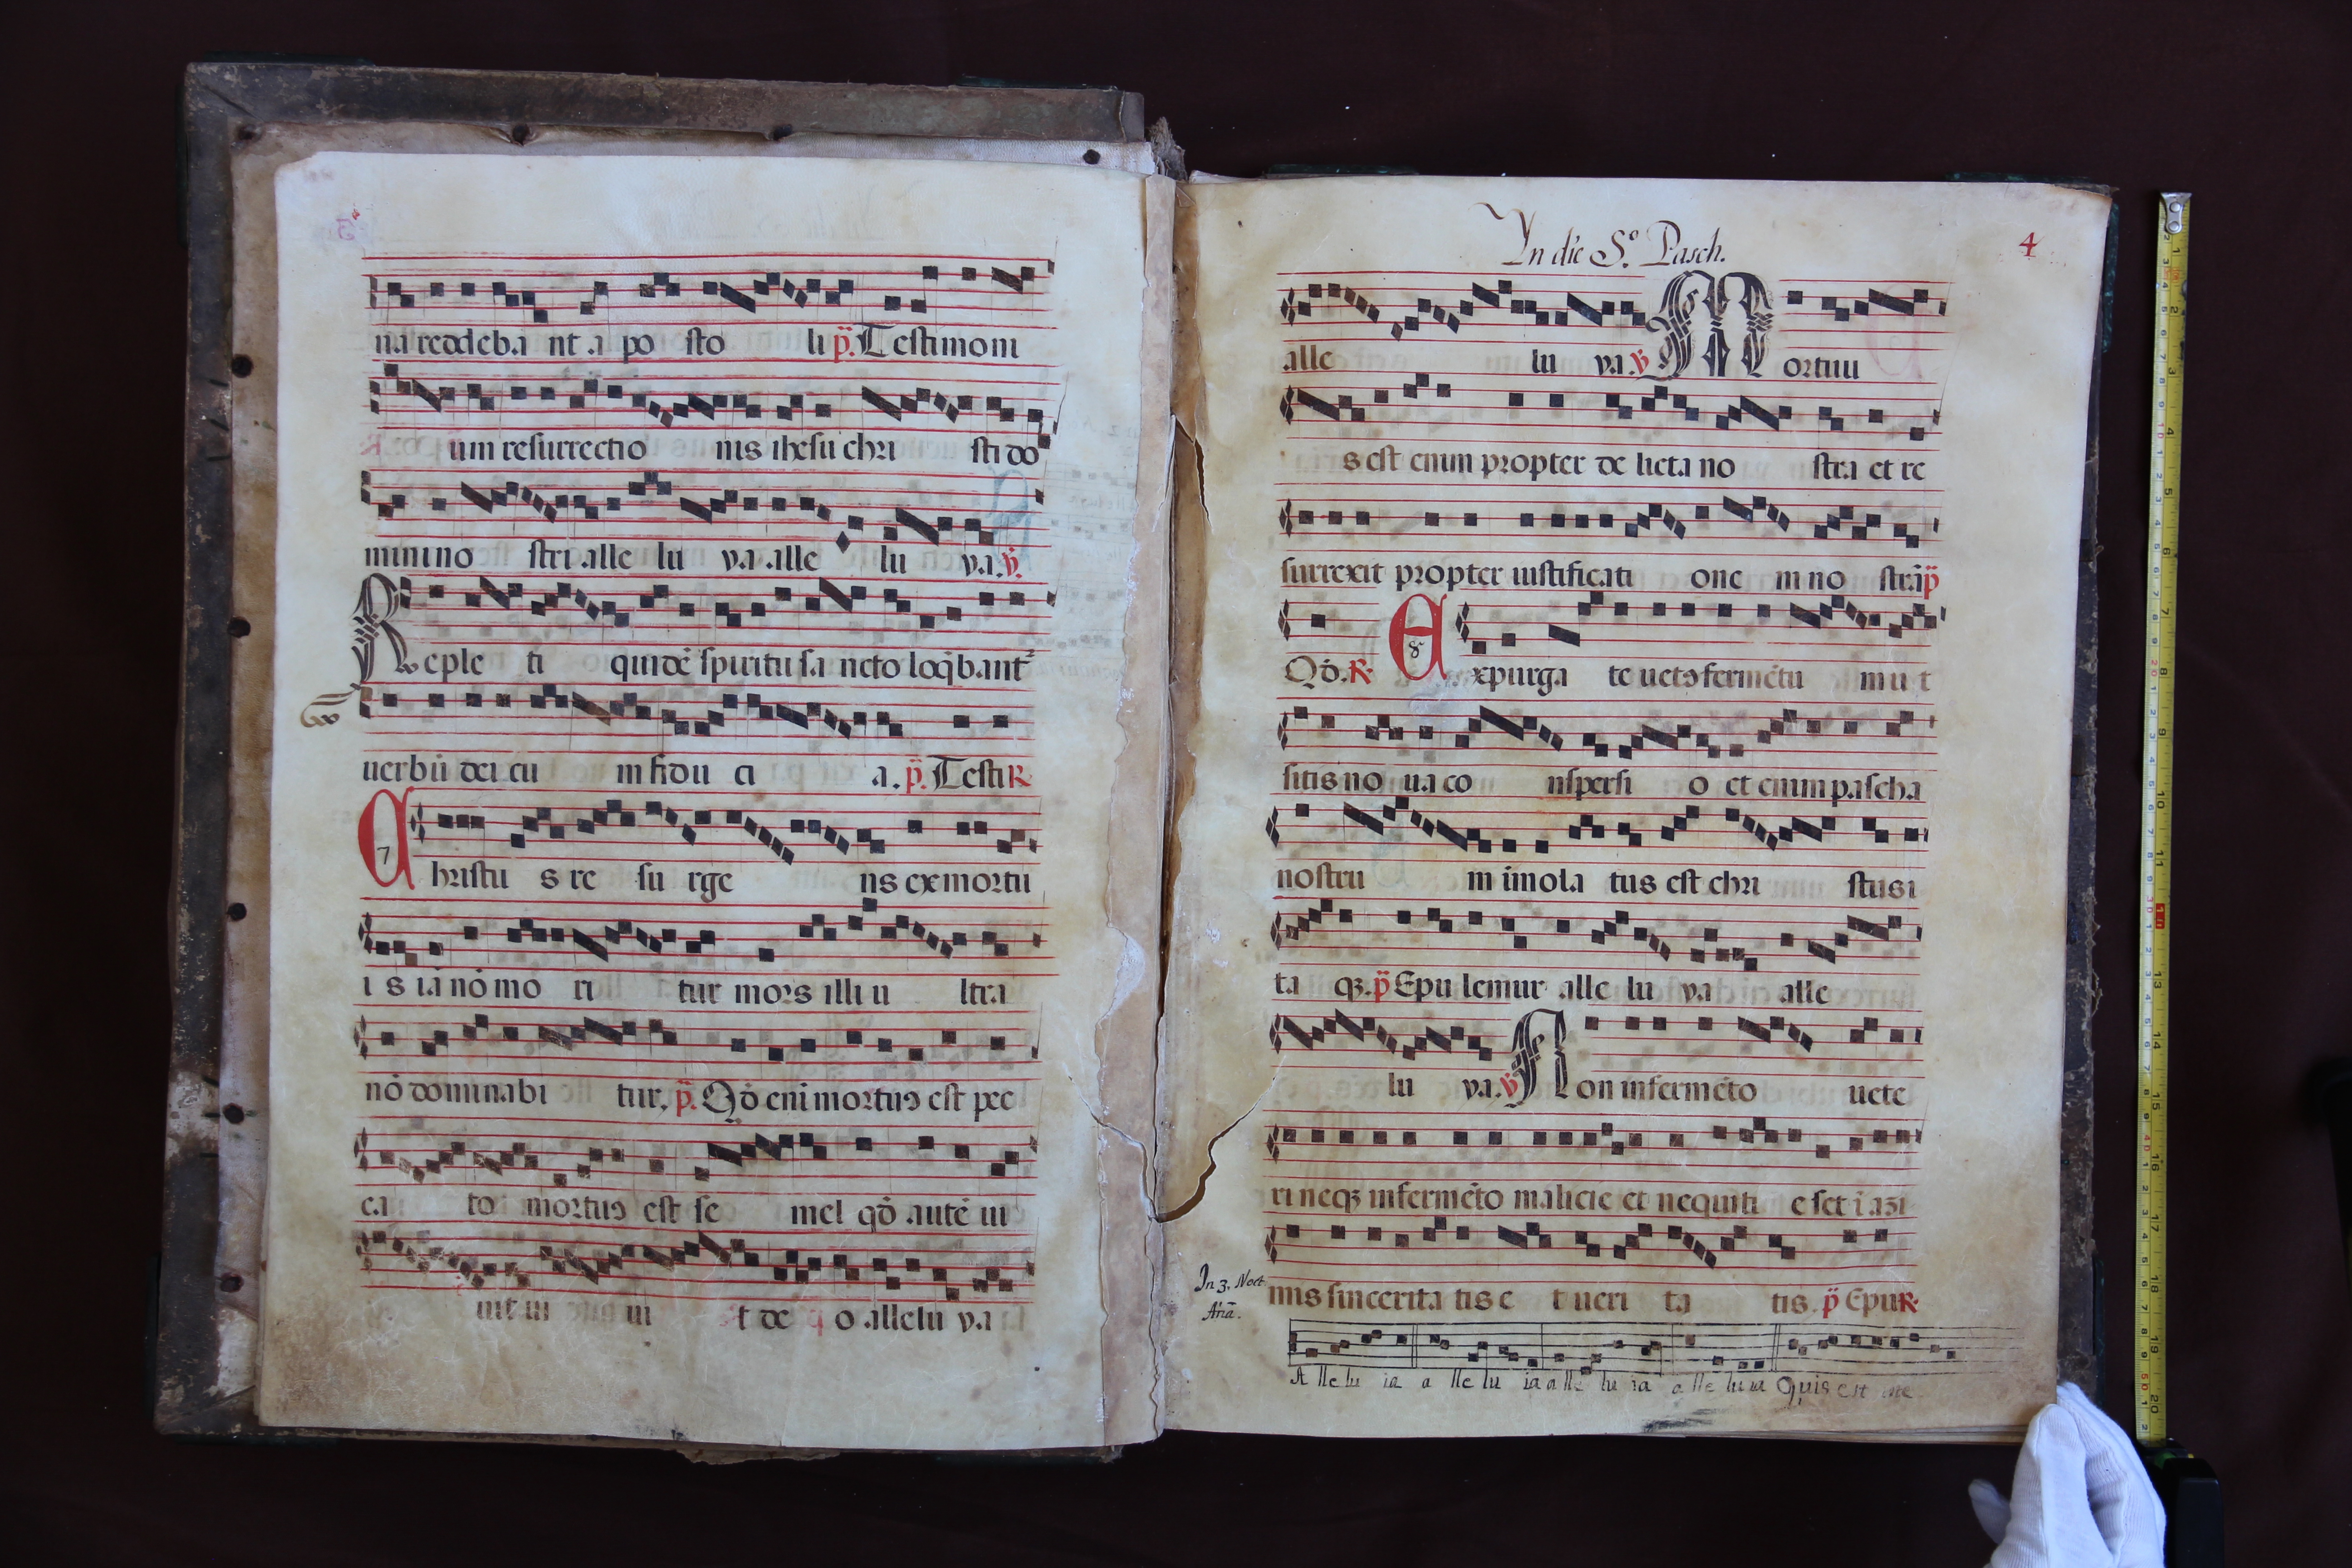 na reddeba nt a po sto li p̈. Testimoni
um resurrectio nis ihesu chri sti do
mini no stri alle lu ya alle lu ya. ꝟ.
Reple ti quidē spiritu sa ncto loq̄bant᷑
uerbū dei cu m fidu ci a. p̈. Testi R
7
Christu s re su rge ns ex mortu
i s iā nō mo ri tur mors illi u ltra
nō dominabi tur. p̈. Qđ eni mortuꝰ est pec
ca to mortuꝰ est se mel qđ autē ui
uit ui ui t de o allelu ya
In die S.º Pasch.
4
alle lu ya. ꝟ Mortuu
s est enim propter de licta no stra et re
surrexit propter iustificati one m no strā p̈
Qđ. R. 8 Expurga te uetꝰ fermētu m u t
sitis no ua co nspersi o et enim pascha
nostru m īmola tus est chri stus i
ta qꝫ. p̈ Epu lemur alle lu ya alle
lu ya. ꝟ Non in fermēto uete
ri neqꝫ in fermēto malicie et nequiti e set ī azi
mis sincerita tis e t ueri ta tis. p̈ Epu R.
In 3. Noct.
Añā.
A lle lu ia a lle lu ia a lle lu ia a lle lu ia Quis est me